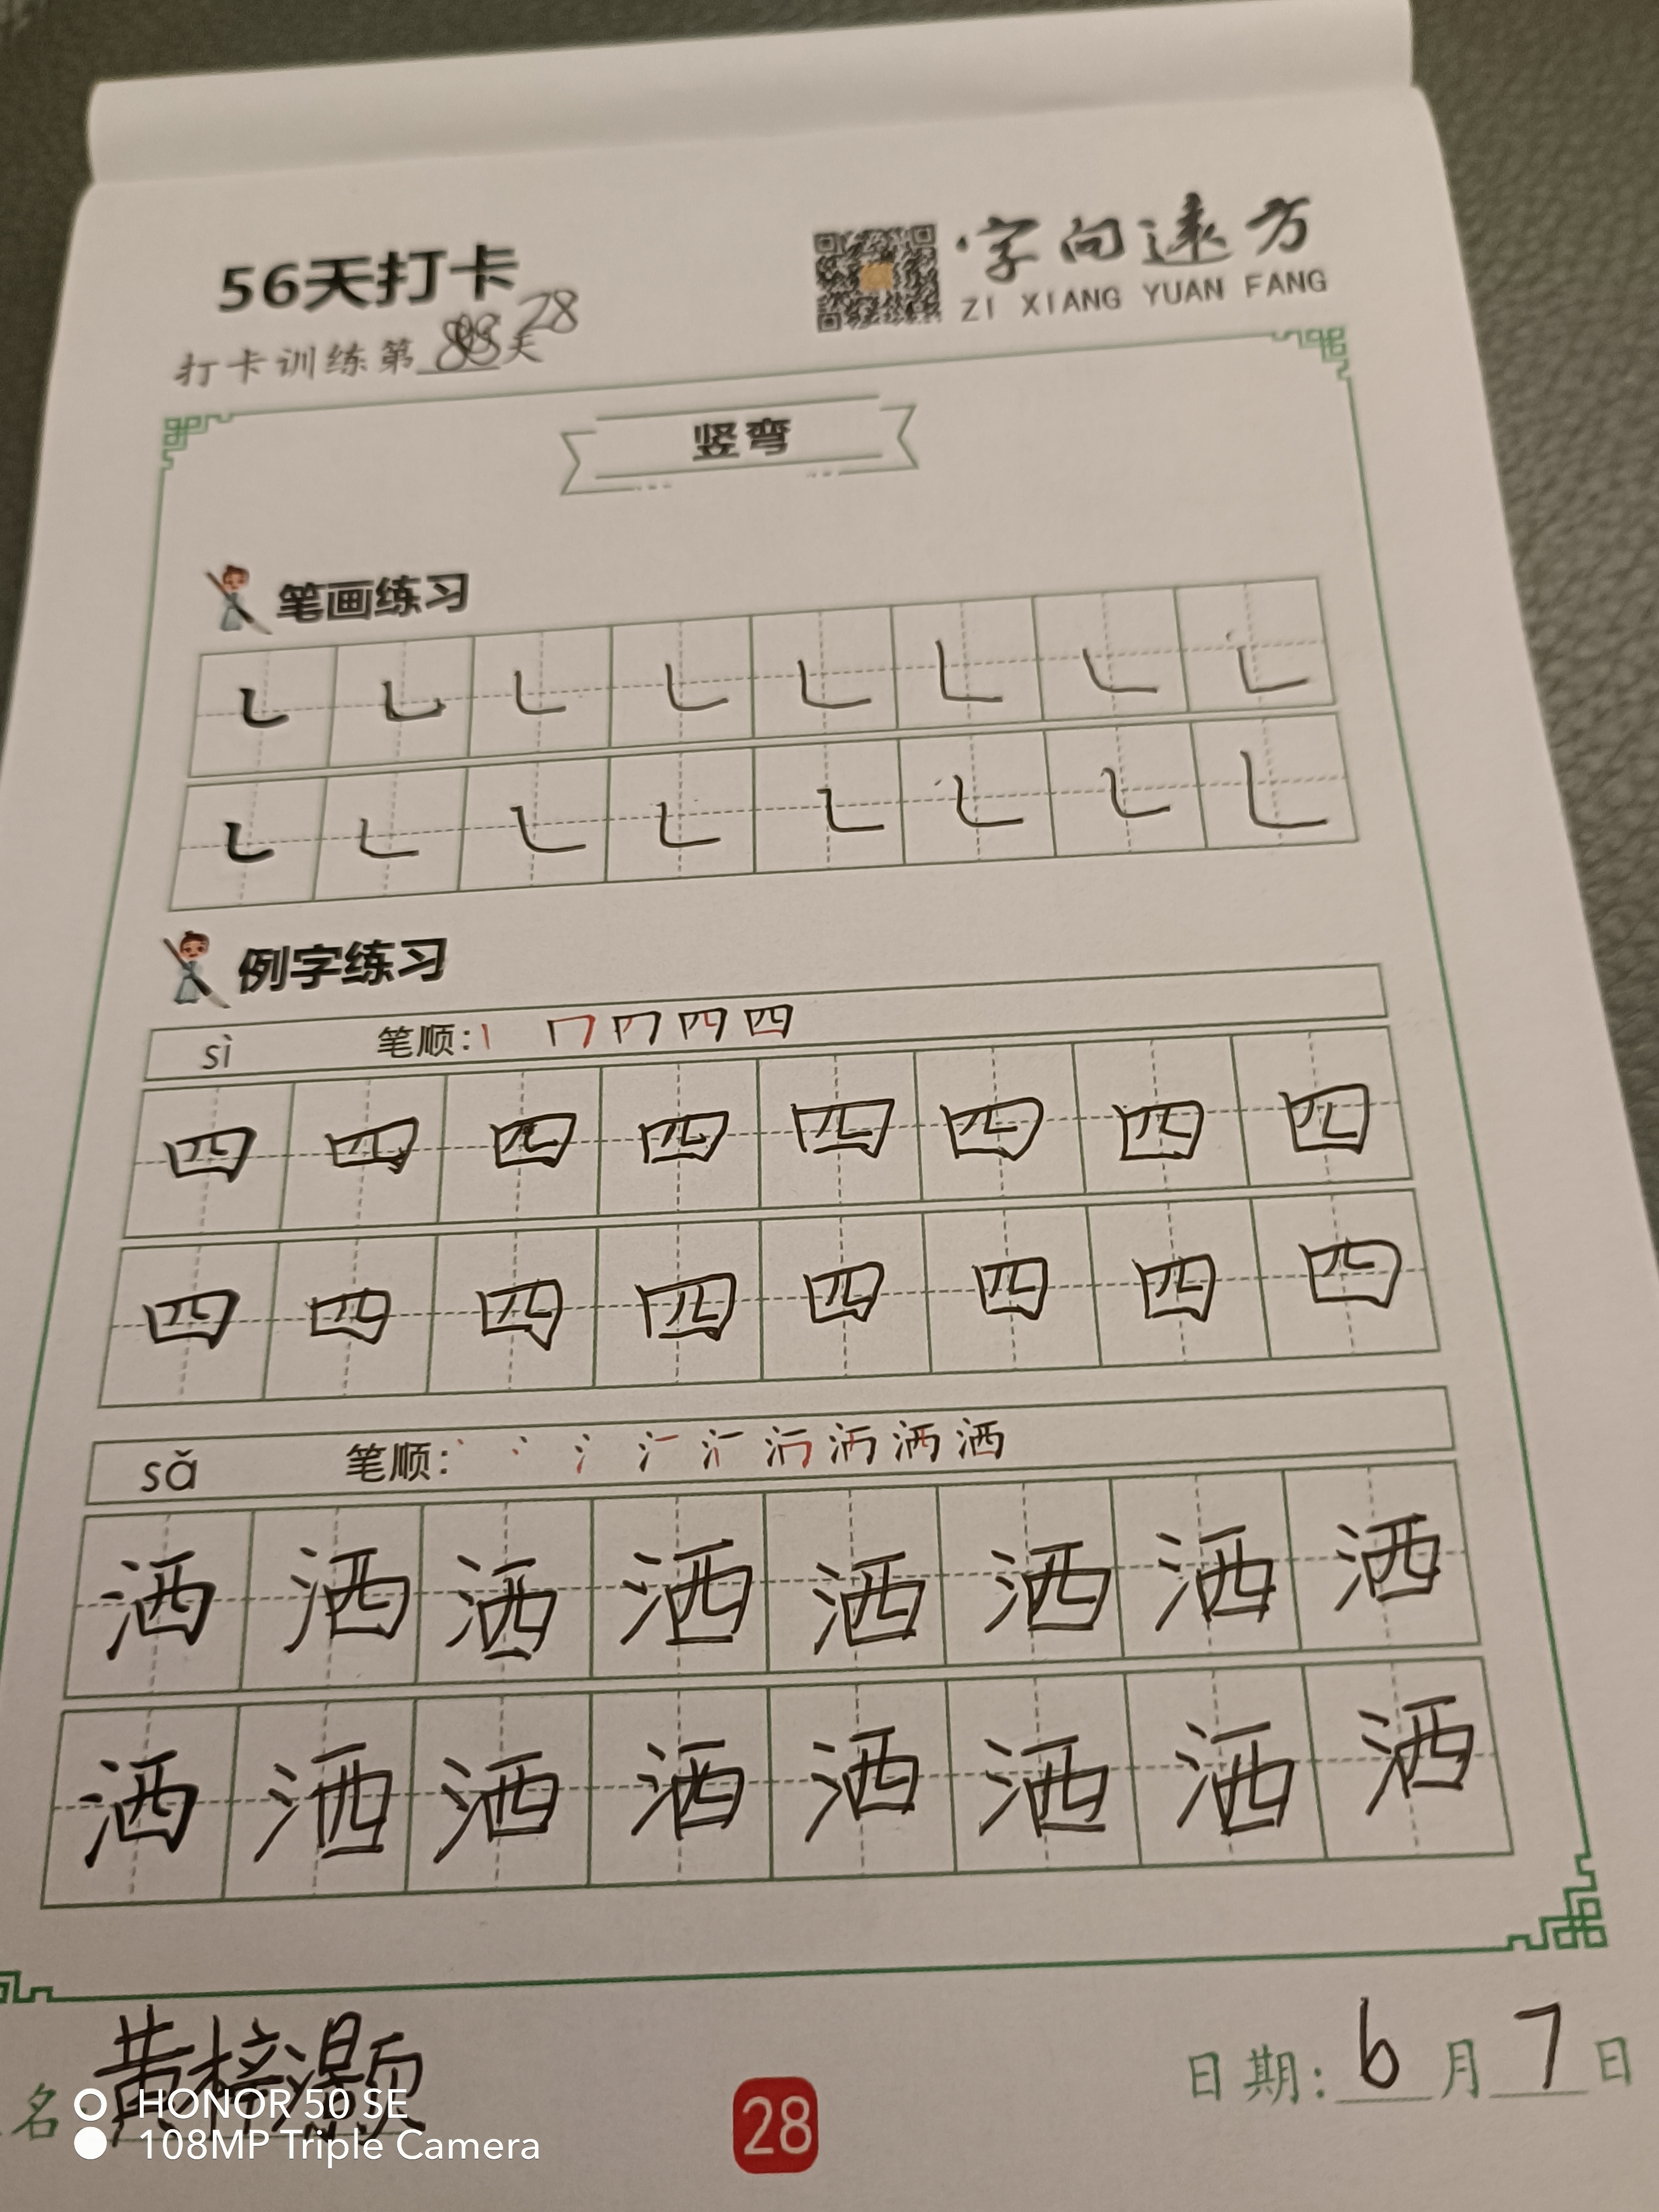 56天打卡
字向远方
ZI XIANG YUAN FANG
打卡训练第 天 28
竖弯
笔画练习
例字练习
sì 笔顺:
四 四 四 四 四 四 四 四
四 四 四 四 四 四 四 四
sǎ 笔顺: 洒
洒 洒 洒 洒 洒 洒 洒 洒
洒 洒 洒 洒 洒 洒 洒 洒
名 黄梓灏
日期: 6 月 7 日
28
HONOR 50 SE
108MP Triple Camera